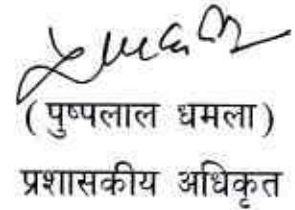 ( पुष्पलाल धमला )
प्रशासकीय अधिकृत